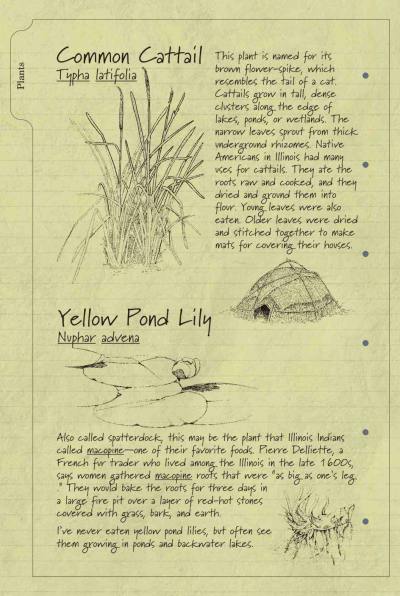 Plants
Common Cattail
Typha latifolia
This plant is named for its
brown flower-spike, which
resembles the tail of a cat.
Cattails grow in tall, dense
clusters along the edge of
lakes, ponds, or wetlands. The
narrow leaves sprout from thick
underground rhizomes. Native
Americans in Illinois had many
uses for cattails. They ate the
roots raw and cooked, and they
dried and ground them into
flour. Young leaves were also
eaten. Older leaves were dried
and stitched together to make
mats for covering their houses.
Yellow Pond Lily
Nuphar advena
Also called spatterdock, this may be the plant that Illinois Indians
called macopine—one of their favorite foods. Pierre Delliette, a
French fur trader who lived among the Illinois in the late 1600s,
says women gathered macopine roots that were "as big as one's leg.
" They would bake the roots for three days in
a large fire pit over a layer of red-hot stones
covered with grass, bark, and earth.
I've never eaten yellow pond lilies, but often see
them growing in ponds and backwater lakes.